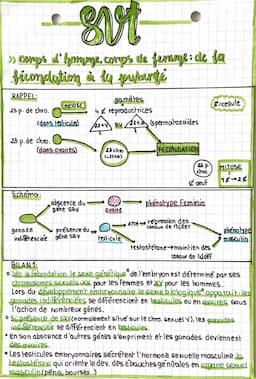 SVT
» corps d'homme, corps de femme : de la
fécondation à la puberté
RAPPEL :
gamètes
¢ reproductrices
¢ = cellule
23 p. de chro.
MEIOSE
(dans testicules)
22+Y
ou
22+X
(spermatozoïdes)
23 p. de chro.
(dans ovaires)
23 chro
FECONDATION
23 p
chro
¢ œuf
MITOSE
1¢→2¢
Schéma :
absence du
gène SRY
ovaire
phénotype féminin
gonade
indifférenciée
présence du
gène SRY
testicule
AMH → régression des
canaux de Müller
testostérone → maintien des
canaux de Wolff
phénotype
masculin
BILAN :
• Dès la fécondation le sexe génétique de l'embryon est déterminé par ses
chromosomes sexuels XX pour les femmes et XY pour les hommes.
Lors du développement embryonnaire le sexe biologique apparaît : les
gonades indifférenciées se différencient en testicules ou en ovaires sous
l'action de nombreux gènes.
• Si présence de SRY (normalement situé sur le chro. sexuel Y), les gonades
indifférenciées se différencient en testicules.
• En son absence d'autres gènes s'expriment et les gonades deviennent
des ovaires.
• Les testicules embryonnaires sécrètent l'hormone sexuelle masculine la
testostérone qui oriente le dev. des ébauches génitales en organe sexuel
masculin (pénis, bourses..)